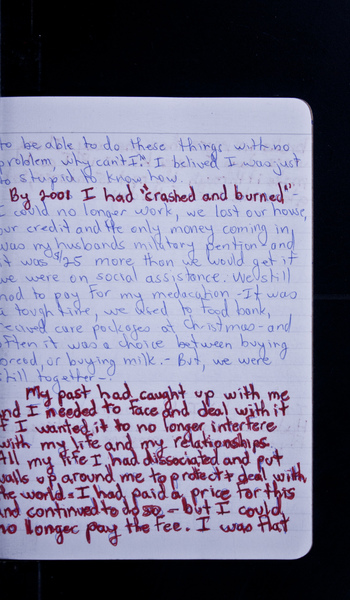 to be able to do these things with no
problem, why can't I?". I belived I was just
to stupid to know how.
By 2001 I had "crashed and burned"
I could no longer work, we lost our house,
our credit and the only money coming in,
was my husbands military pention and
it was $125 more than we would get if
we were on social assistance. We still
had to pay for my medacation - It was
a tough time, we used to food bank,
recived care packages at Christmas - and
often it was a choice between buying
bread, or buying milk. - But, we were
still together -.
My past had caught up with me
and I needed to face and deal with it
if I wanted it to no longer interfere
with my life and my relationships.
All my life I had dissociated and put
walls up around me to protect & deal with
the world. I had paid a price for this
and continued to do so - but I could
no longer pay the fee. I was flat